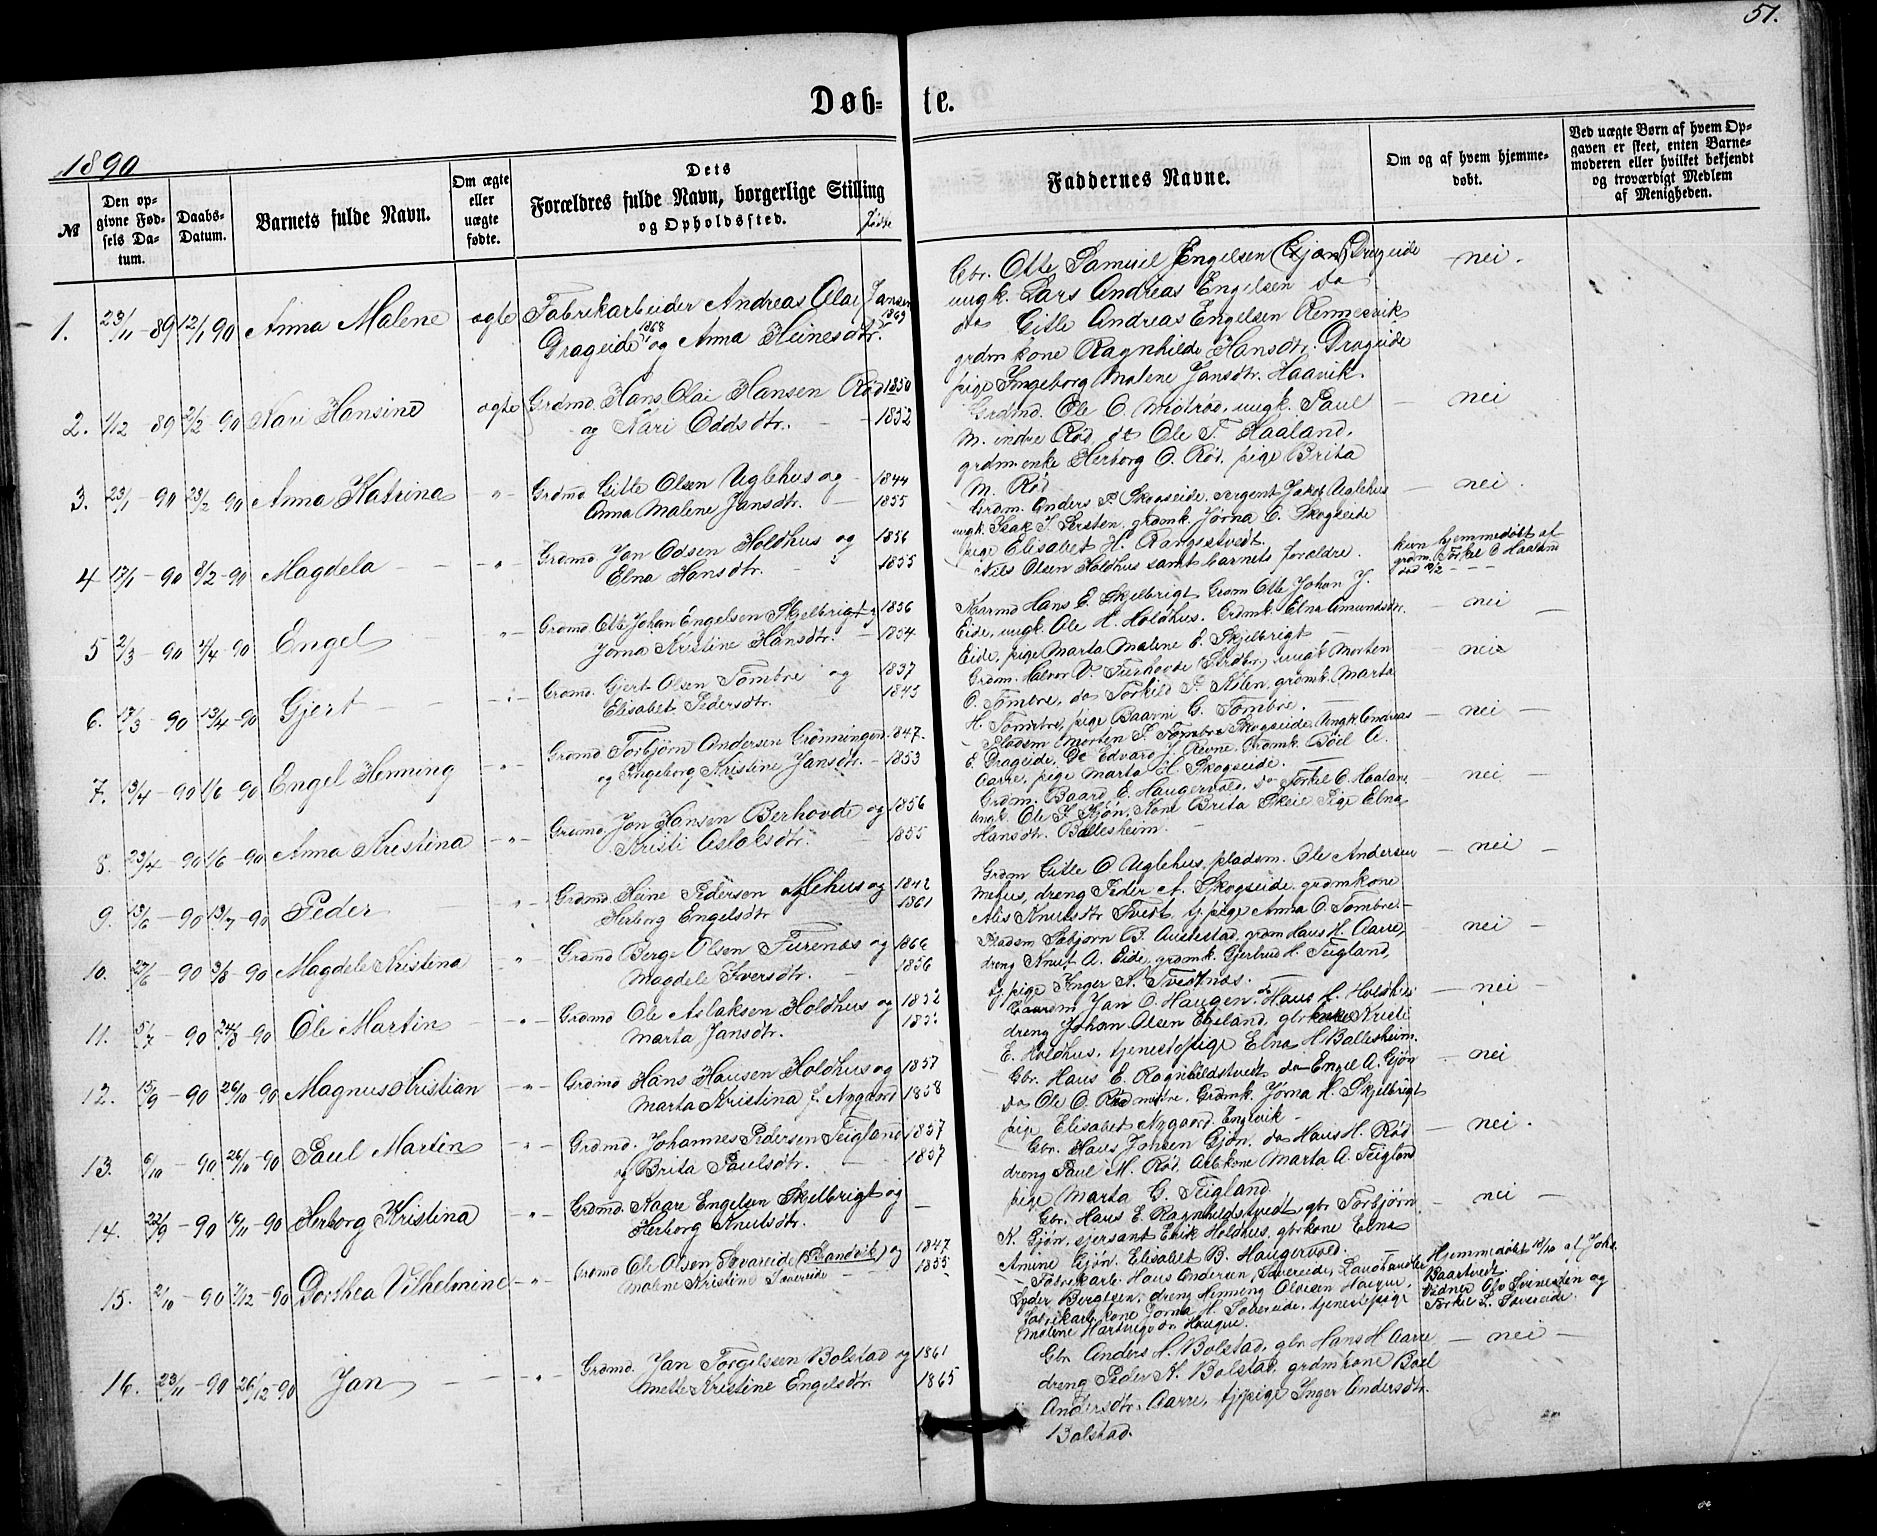 51.
Døb- te.
1890
№
Den op-
givne Fød-
sels Da-
tum.
Daabs-
Datum.
Barnets fulde Navn.
Om ægte
eller
uægte
fødte.
Dets
Forældres fulde Navn, borgerlige Stilling
og Opholdssted.
fødte
Faddernes Navne.
Om og af hvem hjemme-
døbt.
Ved uægte Børn af hvem Op-
gaven er skeet, enten Barne-
moderen eller hvilket bekjendt
og troværdigt Medlem
af Menigheden.
1. 23/11 - 89 12/1 90 Anna Malene ægte Fabrikarbeider Andreas Olai Jansen 1863
Drageide og Anna Heinesdtr. 1868
Gbr. Otte Samuel Engelsen (Gjøn) Drageide
ungk. Lars Andreas Engelsen do
do Gitle Andreas Engelsen Rennesvik
grdm kone Ragnhilde Hansdtr. Drageide
pige Ingeborg Malene Jansdtr. Haavik.
nei.
2. 1/12 89 2/2 90 Kari Hansine ægte Grdmd. Hans Olai Hansen Rød 1850
og Kari Oddsdtr. 1852
Grdmd. Ole O. Midtrød, ungk. Paul
M. indre Rød, dt Ole T. Haaland,
grdm enke Herborg O. Rød, pige Brita
M. Rød
nei
3. 23/1 - 90 23/2 90 Anna Katrina - " - Grdmd Gitle Olsen Uglehus og 1844
Anna Malene Jansdtr. 1855
Grdm. Anders P. Skogseide, sergent Jakob Uglehus
ungk. Isak J. Sersten, grdmk. Jorna O. Skogseide
pige Elisabet H.
nei.
4 13/1 - 90 8/2 - 90 Magdela - " - Grdmd Jan Odsen Holdhus og 1856
Elna Hansdtr. 1855
Nils Olsen Holdhus samt barnets forældre.
kun hjemmedøbt af
grdm. Torkel O Haaland
død
5 2/3 - 90 4/4 - 90 Engel " - Grdmd. Otte Johan Engelsen Skjelbrigt og 1856
Jorna Kristine Hansdtr. 1854
Kaarmd Hans E. Skjelbrigt Grdm Otte Johan J.
Eide, ungk. Ole H. Holdhus. Grdmk. Elna Amundsdtr.
Eide, pige Marta Malene E. Skjelbrigt
nei
6. 17/3 - 90 13/4 - 90 Gjert - " - Grdmd. Gjert Olsen Tømbre og 1837
Elisabet Pedersdtr. 1845
Grdm. Halvor V. Furhovde (Strdbr), ungk Morten
O. Tømbre, do Torkild P. grdmk. Marta
H. Tømbre, pige Baarni G. Tømbre.
nei
7. 13/4 - 90 1/6 - 90 Engel Henning - " - Grdmd Torbjørn Andersen Grønningen 1847.
og Ingeborg Kristine Jansdtr. 1853
Pladsm Morten P. Tømbre Skogseide. Ungk. Andreas
E. Drageide, Do Edvard J. Revne. Grdmk. Boel A.
Aarre, pige Marta H. Skogseide.
nei
8. 23/4 - 90 1/6 - 90 Anna Kristina - " - Grdmd. Jon Hansen Berhovde og 1856
Kristi Aslaksdtr. 1855
Grdm. Baard E. Haugervold, do Torkel O. Haaland
ungk. Ole J. Gjøn, kone Brita Skeie Pige Elna
Hansdtr. Ballesheim.
nei
9. 15/6 - 90 13/7 - 90 Peder " - Grdmd Heine Pedersen Mehus og 1842
Herborg Engelsdtr 1861
Grdm Gitle O Uglehus, pladsm. Ole Andersen
Mehus, dreng Peder A. Skogseide, grdmkone
Alis Knutsdtr Tvedt, tj. pige Anna O. Tømbre
nei
10. 27/6 - 90 3/8 - 90 Magdele Kristina " Grdmd Berge Olsen Furenæs og
Magdele Iversdtr. 1856
Pladsm Asbjørn B. Austestad, grdm Hans H. Aarre,
dreng Knut A. Eide, grdmk. Gjertrud H. Teigland,
tj pige Inger A. Tvedtnæs.
nei
11. 5/7 - 90 24/8 - 90 Ole Martin - " - Grdmd Ole Aslaksen Holdhus og 1852
Marta Jansdtr.
Jan O. Haugen, do Hans H. Holdhus
dreng Johan Olsen Egeland, gbr kone Kristi
E. Holdhus, tjenestepige Elna H. Ballesheim.
nei
12. 15/9 - 90 26/10 - 90 Magnus Kristian - " - Grdmd Hans Hansen Holdhus og 1857
Marta Kristina J. Nygaard 1858
Gbr. Hans E. Ragnhildstvedt, do Engel A. Gjøn
do Ole O. Rød midtre, Grdmk. Jorna H. Skjelbrigt
pige Elisabet Nygaard Engevik
nei
13. 6/10 - 90 26/10 - 90 Paul Martin " - Grdmd. Johannes Pedersen Teigland 1857
og Brita Paulsdtr. 1857
Gbr. Hans Johnsen Gjøn, do Hans H. Rød
dreng Paul M. Rød, Arb.kone Marta A. Teigland
pige Marta G. Teigland.
nei.
14. 22/9 - 90 16/11 - 90 Herborg Kristina - " - Grdmd. Kaare Engelsen Skelbrigt og
Herborg Knutsdtr.
Gbr. Hans E. Ragnhildstvedt, gbr Torbjørn
K. Gjøn, sjersant Erik Holdhus, gbrkone Elna
Amine Gjøn, Elisabet B. Haugervold.
nei
15. 2/10 - 90 7/12 - 90 Dorthea Vilhelmine - " - Grdmd Ole Olsen Søvareide (Strandvik) og 1847
Malene Kristine Søvereide 1855
Fabrikarb. Hans Andersen, Søvereide, Landhandler
Peder Bergesen, dreng Henning Olvesen Haugve,
Fabrikarb kone Jorna H. Søvereide, tjenestepige
Malene Haugve.
Hjemmedøbt 14/10 af Joh.
Baartvedt
Vidner Ole Svinesden og
Torkel L. Søvereide.
16. 23/11 - 90 26/12 - 90 Jan " Grdmd. Jan Torgilssen Bolstad og 1861
Mette Kristine Engelsdtr. 1865
Gbr Anders H. Bolstad, gbr Hans H Aarre
dreng Peder K. Bolstad, grdmkone Boel
Andersdtr. Aarre, tj pige Inger Andersdtr.
Bolstad.
nei